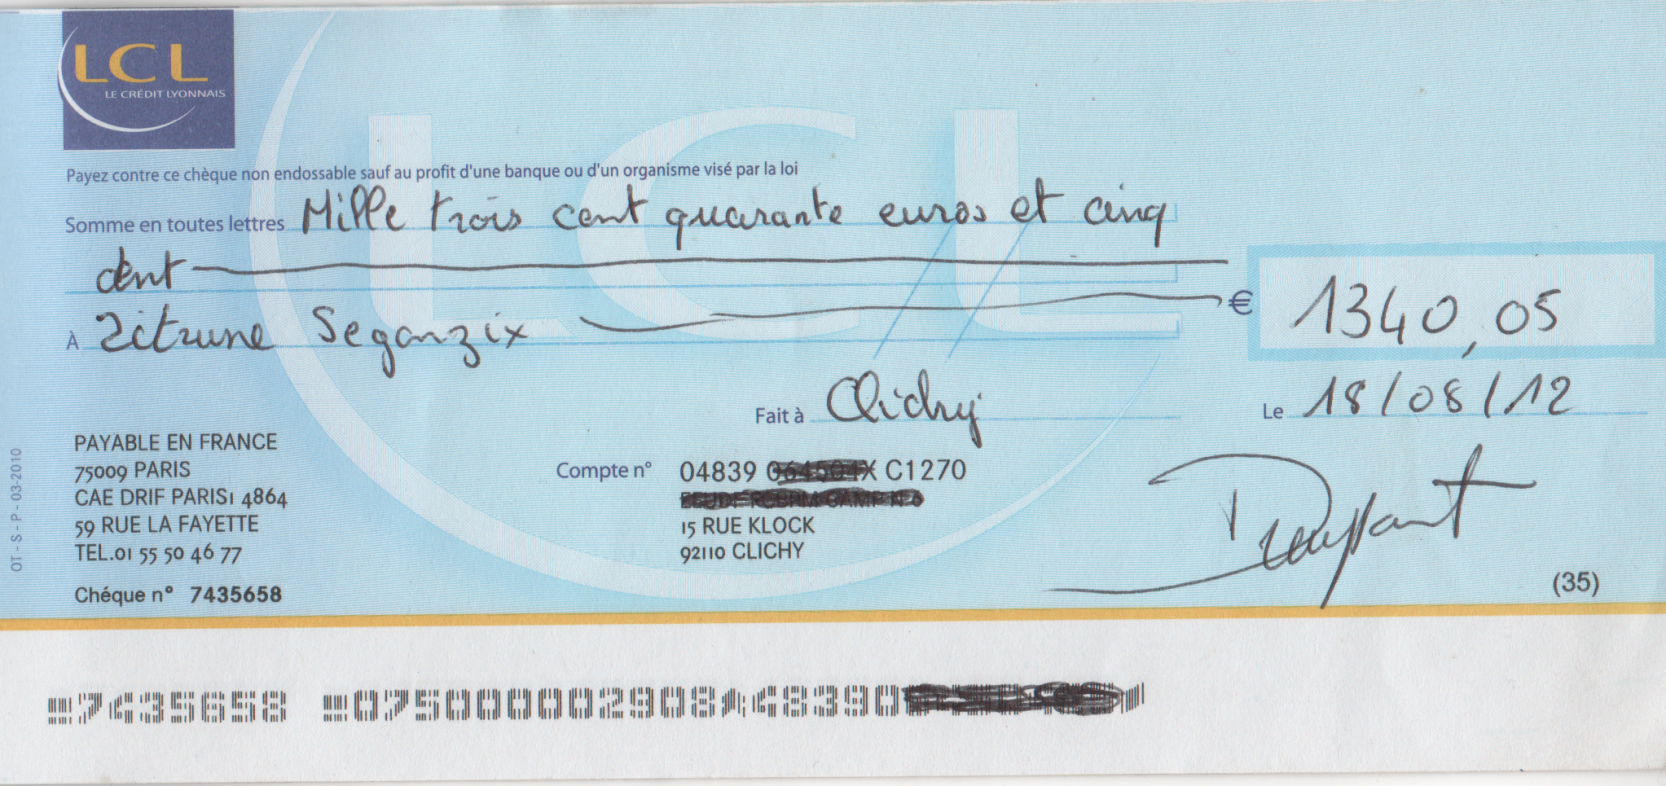 LCL
LE CRÉDIT LYONNAIS
Payez contre ce chèque non endossable sauf au profit d'une banque ou d'un organisme visé par la loi
Somme en toutes lettres Mille trois cent quarante euros et cinq
cent
€ 1340,05
À Zitrune Seganzix
Fait à Clichy
Le 18/08/12
PAYABLE EN FRANCE
75009 PARIS
CAE DRIF PARIS1 4864
59 RUE LA FAYETTE
TEL.01 55 50 46 77
Chéque n° 7435658
Compte n° 04839 C1270
15 RUE KLOCK
92110 CLICHY
(35)
OT - S - P - 03-2010
7435658 075000002908A48390